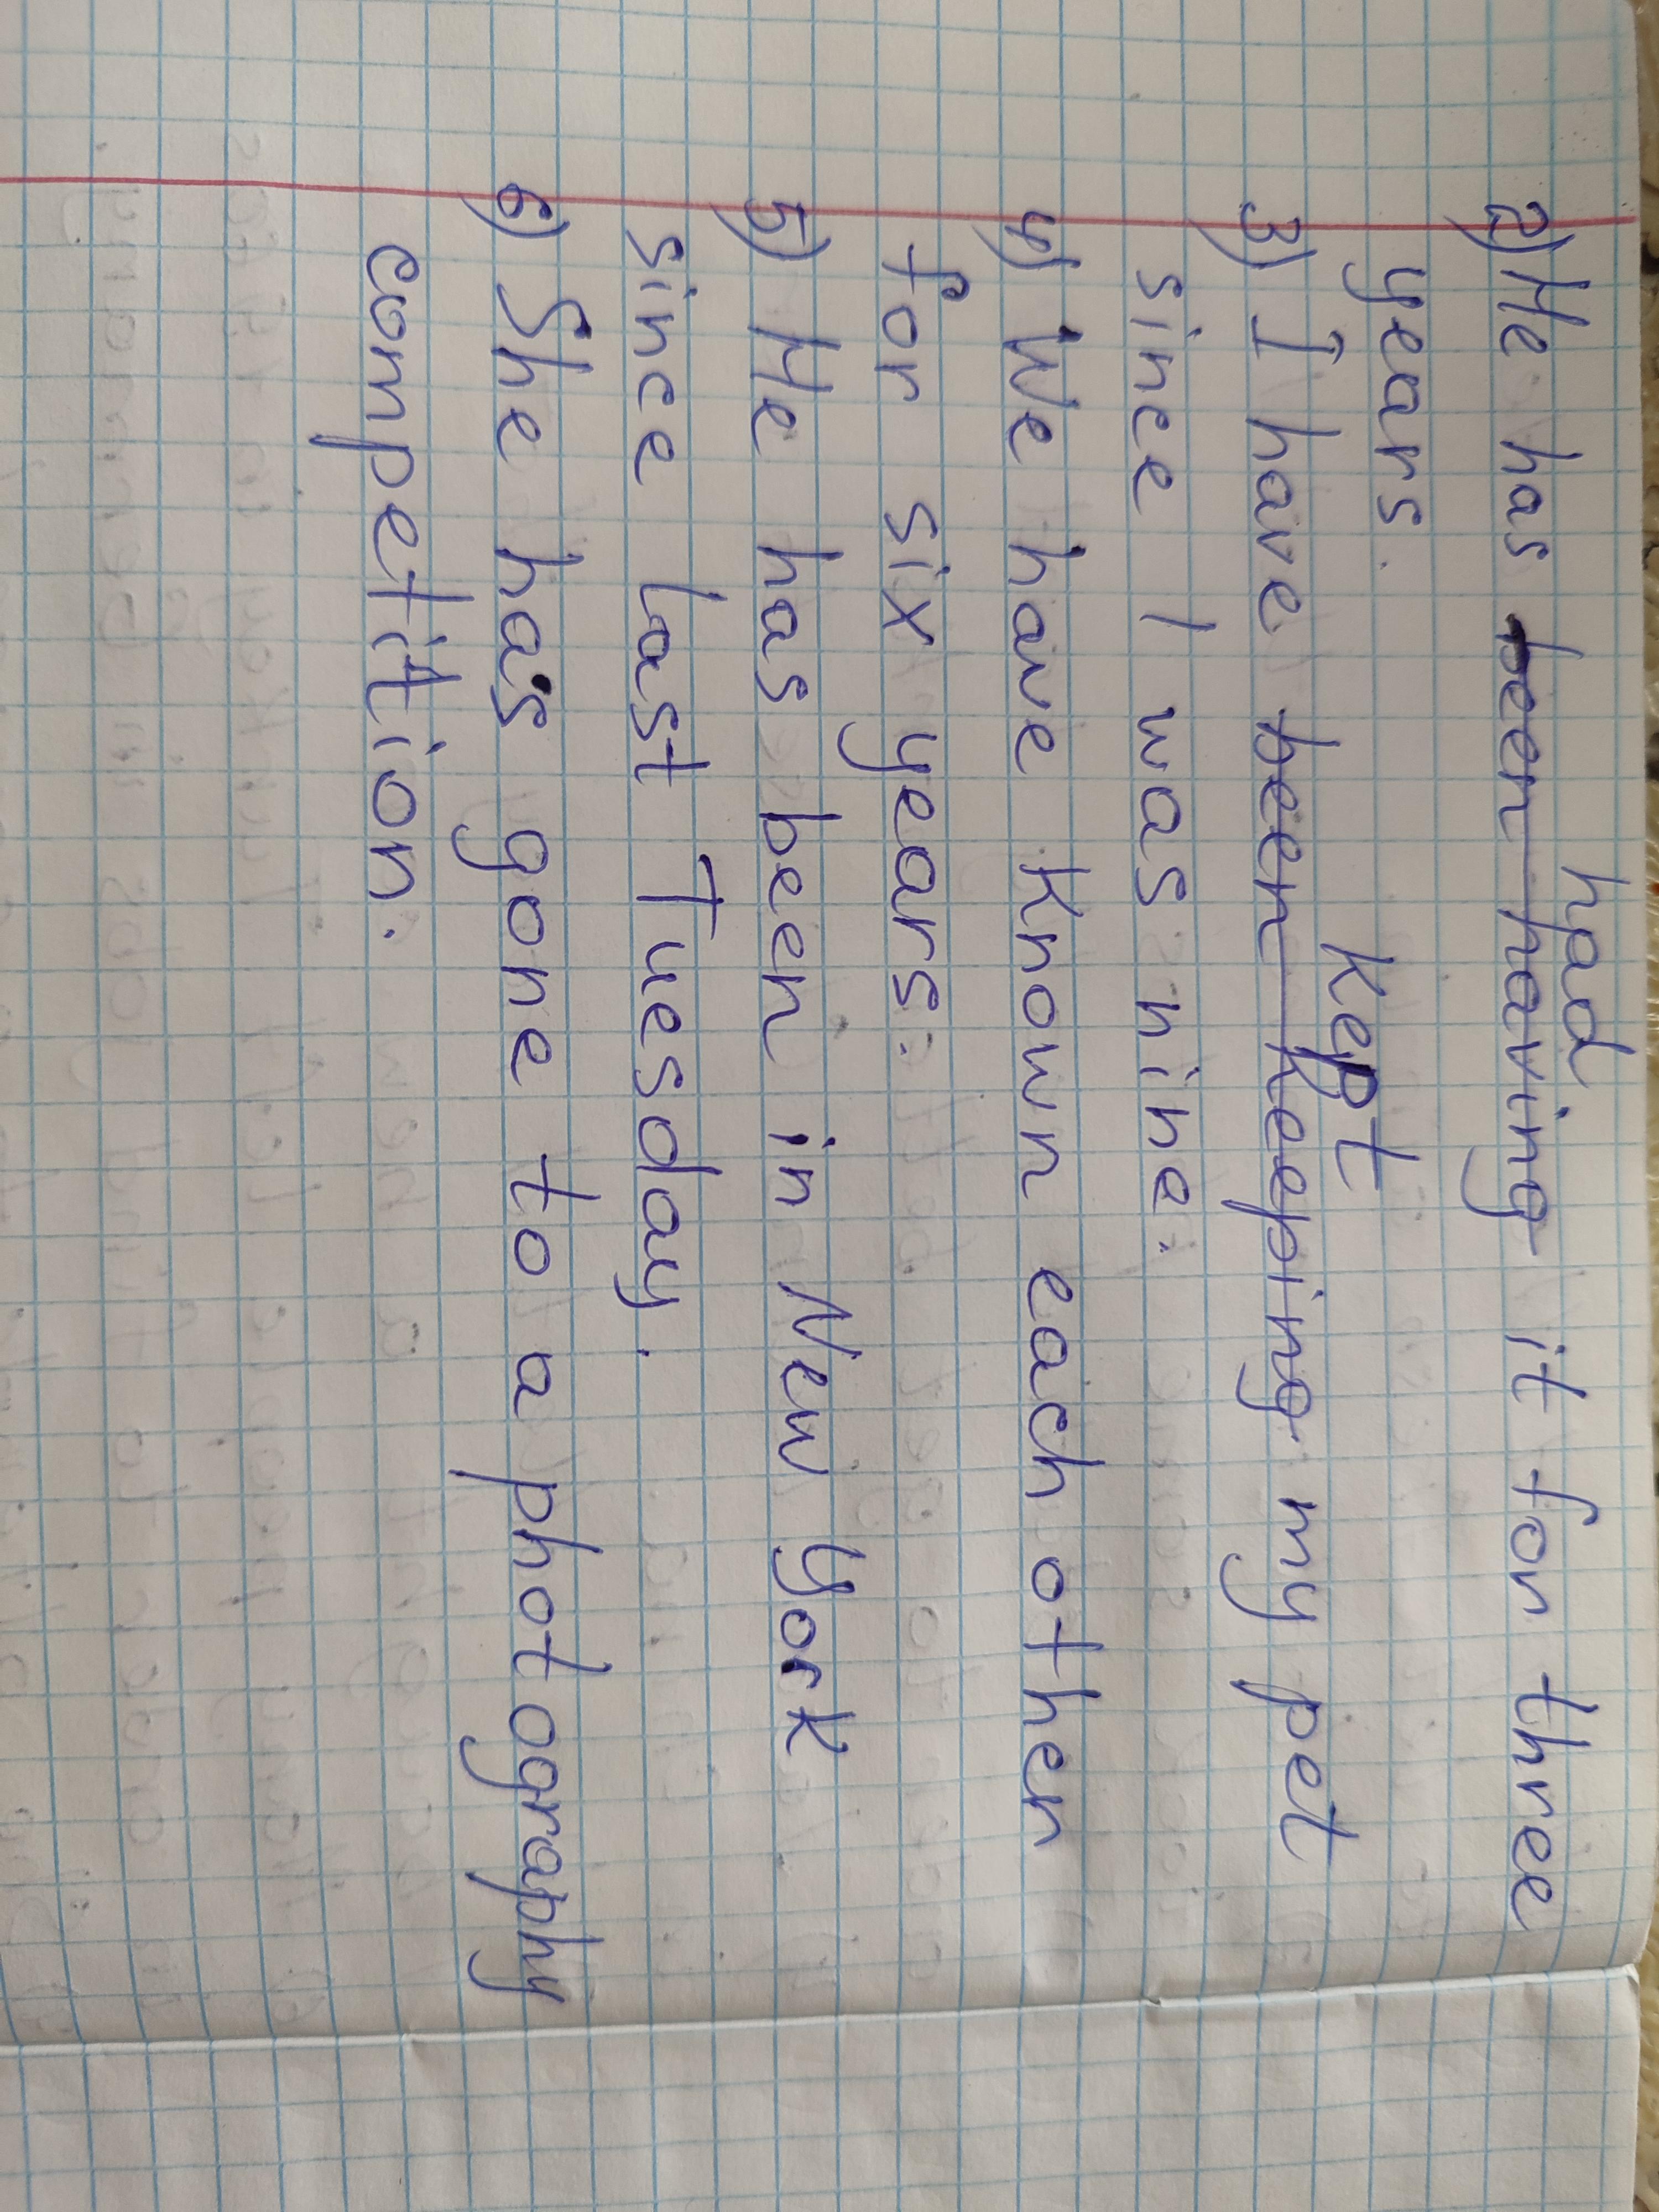 had
2) He has been having it for three
years.
kept
3) I have been keeping my pet
since I was nine.
4) We have known each other
for six years.
5) He has been in New York
since last Tuesday.
6) She has gone to a photography
competition.